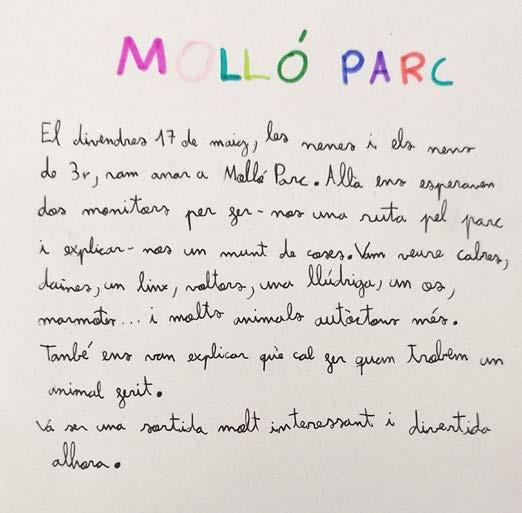 MOLLÓ PARC
El divendres 17 de maig, les nenes i els nens
de 3r, vam anar a Molló Parc. Allà ens esperaven
dos monitors per fer-nos una ruta pel parc
i explicar-nos un munt de coses. Vam veure cabres,
daines, un linx, voltors, una llúdriga, un os,
marmotes... i molts animals autòctons més.
També ens van explicar què cal fer quan trobem un
animal ferit.
Va ser una sortida molt interessant i divertida
alhora.